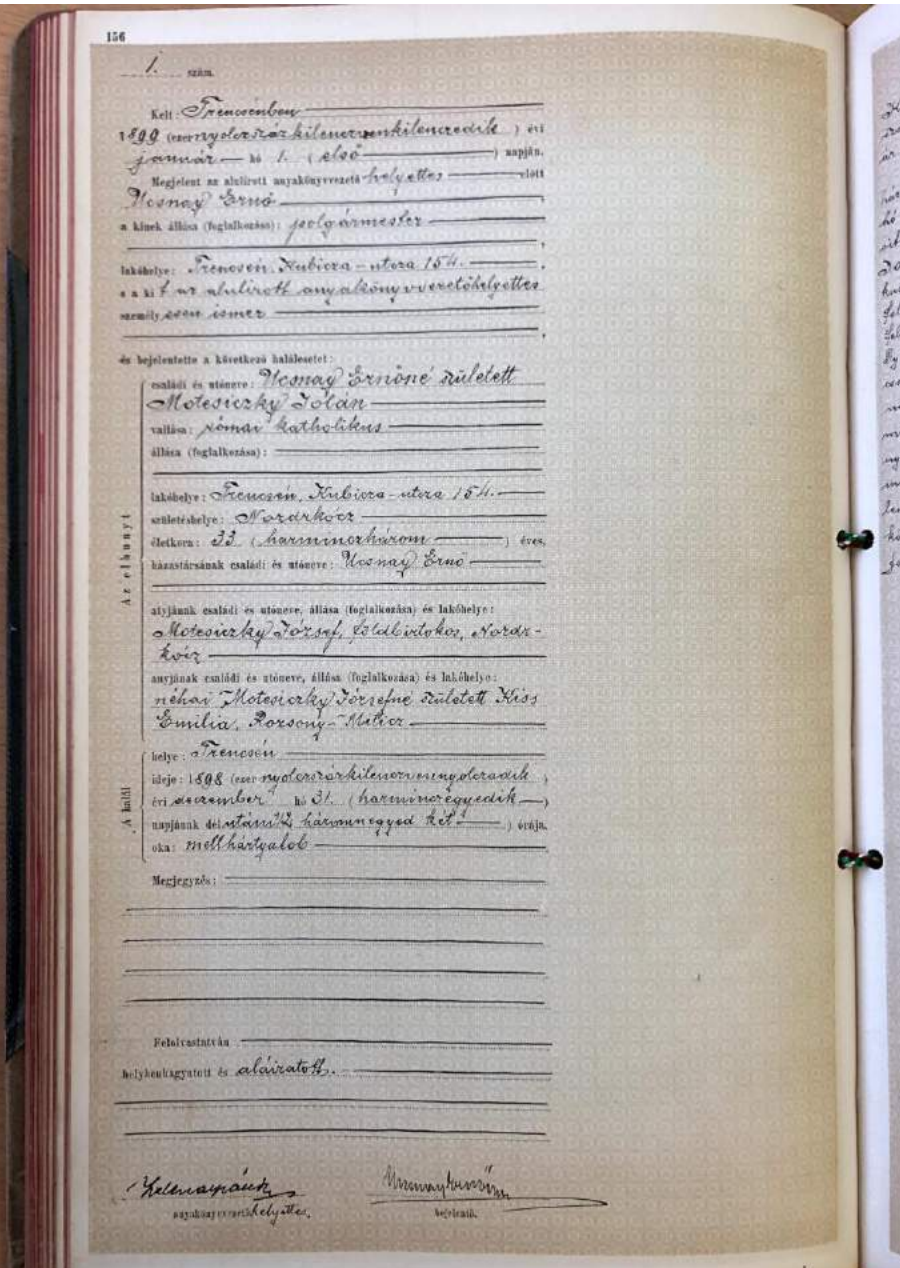 156
1. szám.
Kelt: Trencsénben
1899 (ezernyolczszázkilenczvenkilenczedik) évi
január hó 1. (első) napján.
Megjelent az alulirott anyakönyvvezető helyettes előtt
Ucsnay Ernő
a kinek állása (foglalkozása): polgármester
lakóhelye: Trencsén, Kubicza-utcza 154.
s a kit az alulirott anyakönyvvezetőhelyettes
személyesen ismer
és bejelentette a következő halálesetet:
Az elhunyt
családi és utóneve: Ucsnay Ernőné született
Motesiczky Jolán
vallása: római katholikus
állása (foglalkozása):
lakóhelye: Trencsén, Kubicza-utcza 154.
születéshelye: Nozdrkócz
életkora: 33 (harminczhárom) éves.
házastársának családi és utóneve: Ucsnay Ernő
atyjának családi és utóneve, állása (foglalkozása) és lakóhelye:
Motesiczky József, földbirtokos, Nozdr-
kócz
anyjának családi és utóneve, állása (foglalkozása) és lakóhelye:
néhai Motesiczky Józsefné született Kiss
Emilia, Rozsony-Miticz
A halál
helye: Trencsén
ideje: 1898 (ezernyolczszázkilenczvennyolczadik)
évi deczember hó 31. (harminczegyedik)
napjának délutáni ½ háromnegyed két) órája.
oka: mellhártyalob
Megjegyzés:
Felolvastatván
helybenhagyatott és aláíratott.
anyakönyvvezetőhelyettes.
bejelentő.